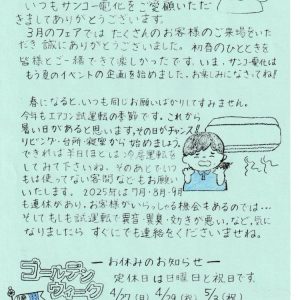 いつもサンコー電化をご愛顧いただ
きましてありがとうございます。
3月のフェアでは たくさんのお客様のご来場をいた
だき 誠にありがとうございました。初春のひとときを
皆様とご一緒できて楽しかったです。いま、サンコー電化は
もう夏のイベントの企画を始めました。お楽しみになさってね!
春になると、いつも同じお願いばかりしてすみません。
今年もエアコン試運転の季節です。これから
暑い日があると思います。その日がチャンス!
リビング・台所・寝室から 始めましょう。
できれば半日ほどは冷房運転を
してみて下さいね。そのあとでいつ
もは使ってない客間などもお願い
いたします。 2025年は7月・8月・9月
も連休があり、お客様がいらっしゃる機会もあるのでは…
そしてもしも試運転で異音・異臭・効きが悪い、など、気に
なりましたら すぐにでも連絡をくださいませね。
ゴールデン
ウィーク
―お休みのお知らせ―
定休日は日曜日と祝日です。
4/27(日) 4/29(祝) 5/3(祝)